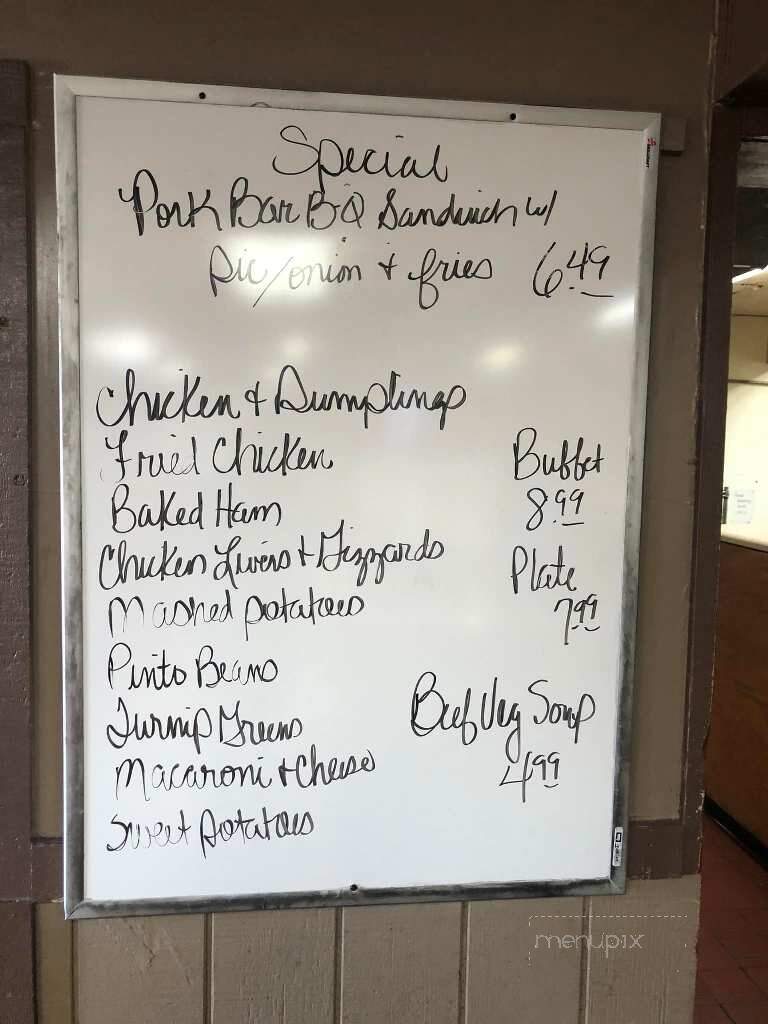 Special
Pork Bar B Q Sandwich w/
Pic/onion + fries 6.49
Chicken + Dumplings
Fried Chicken
Baked Ham
Chicken Livers + Gizzards
Mashed potatoes
Pinto Beans
Turnip Greens
Macaroni + Cheese
Sweet potatoes
Buffet
8.99
Plate
7.99
Beef Veg Soup
4.99
menupix